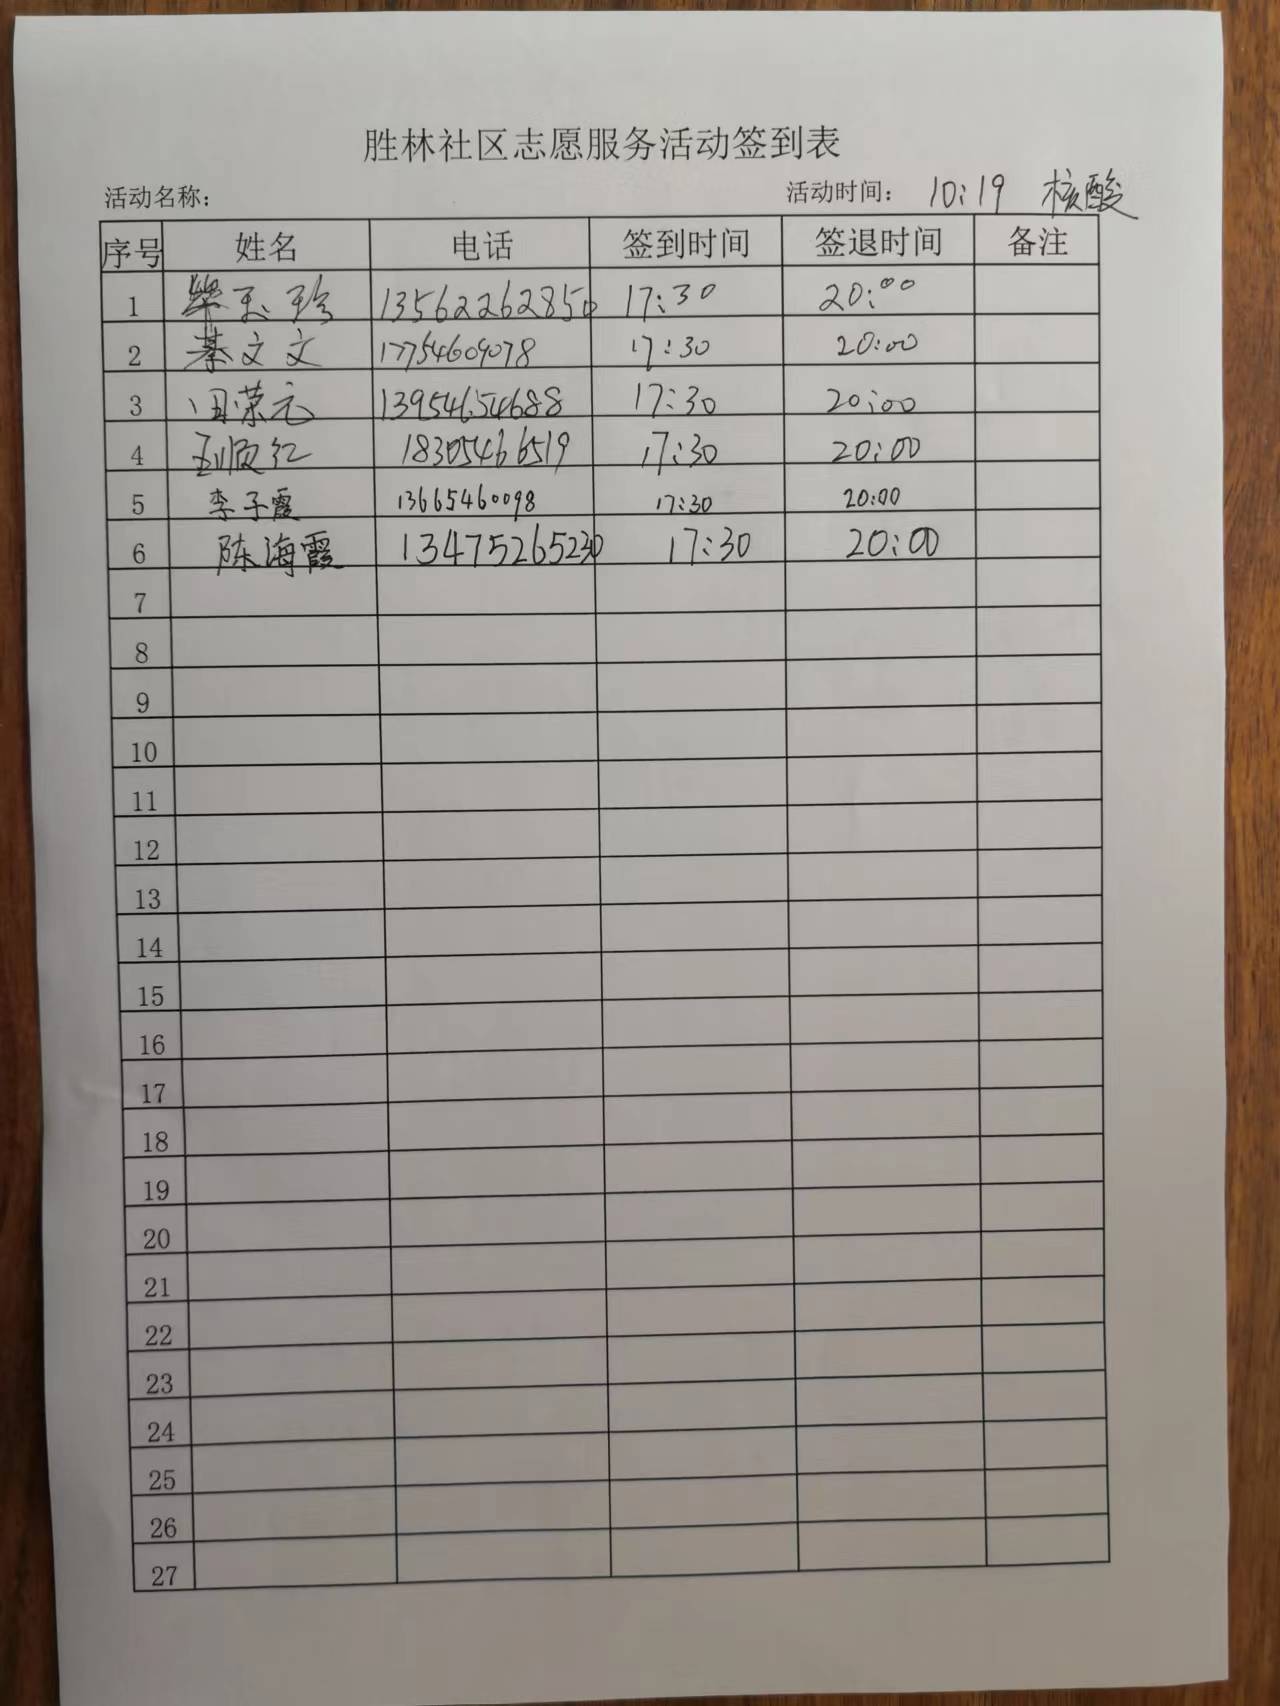 胜林社区志愿服务活动签到表
活动名称: 活动时间: 10:19 核酸
序号 姓名 电话 签到时间 签退时间 备注
1 玉珍 13562262850 17:30 20:00
2 綦文文 17754609078 17:30 20:00
3 田荣元 13954654688 17:30 20:00
4 顺红 18305466519 17:30 20:00
5 李子霞 13665460098 17:30 20:00
6 陈海霞 13475265230 17:30 20:00
7
8
9
10
11
12
13
14
15
16
17
18
19
20
21
22
23
24
25
26
27